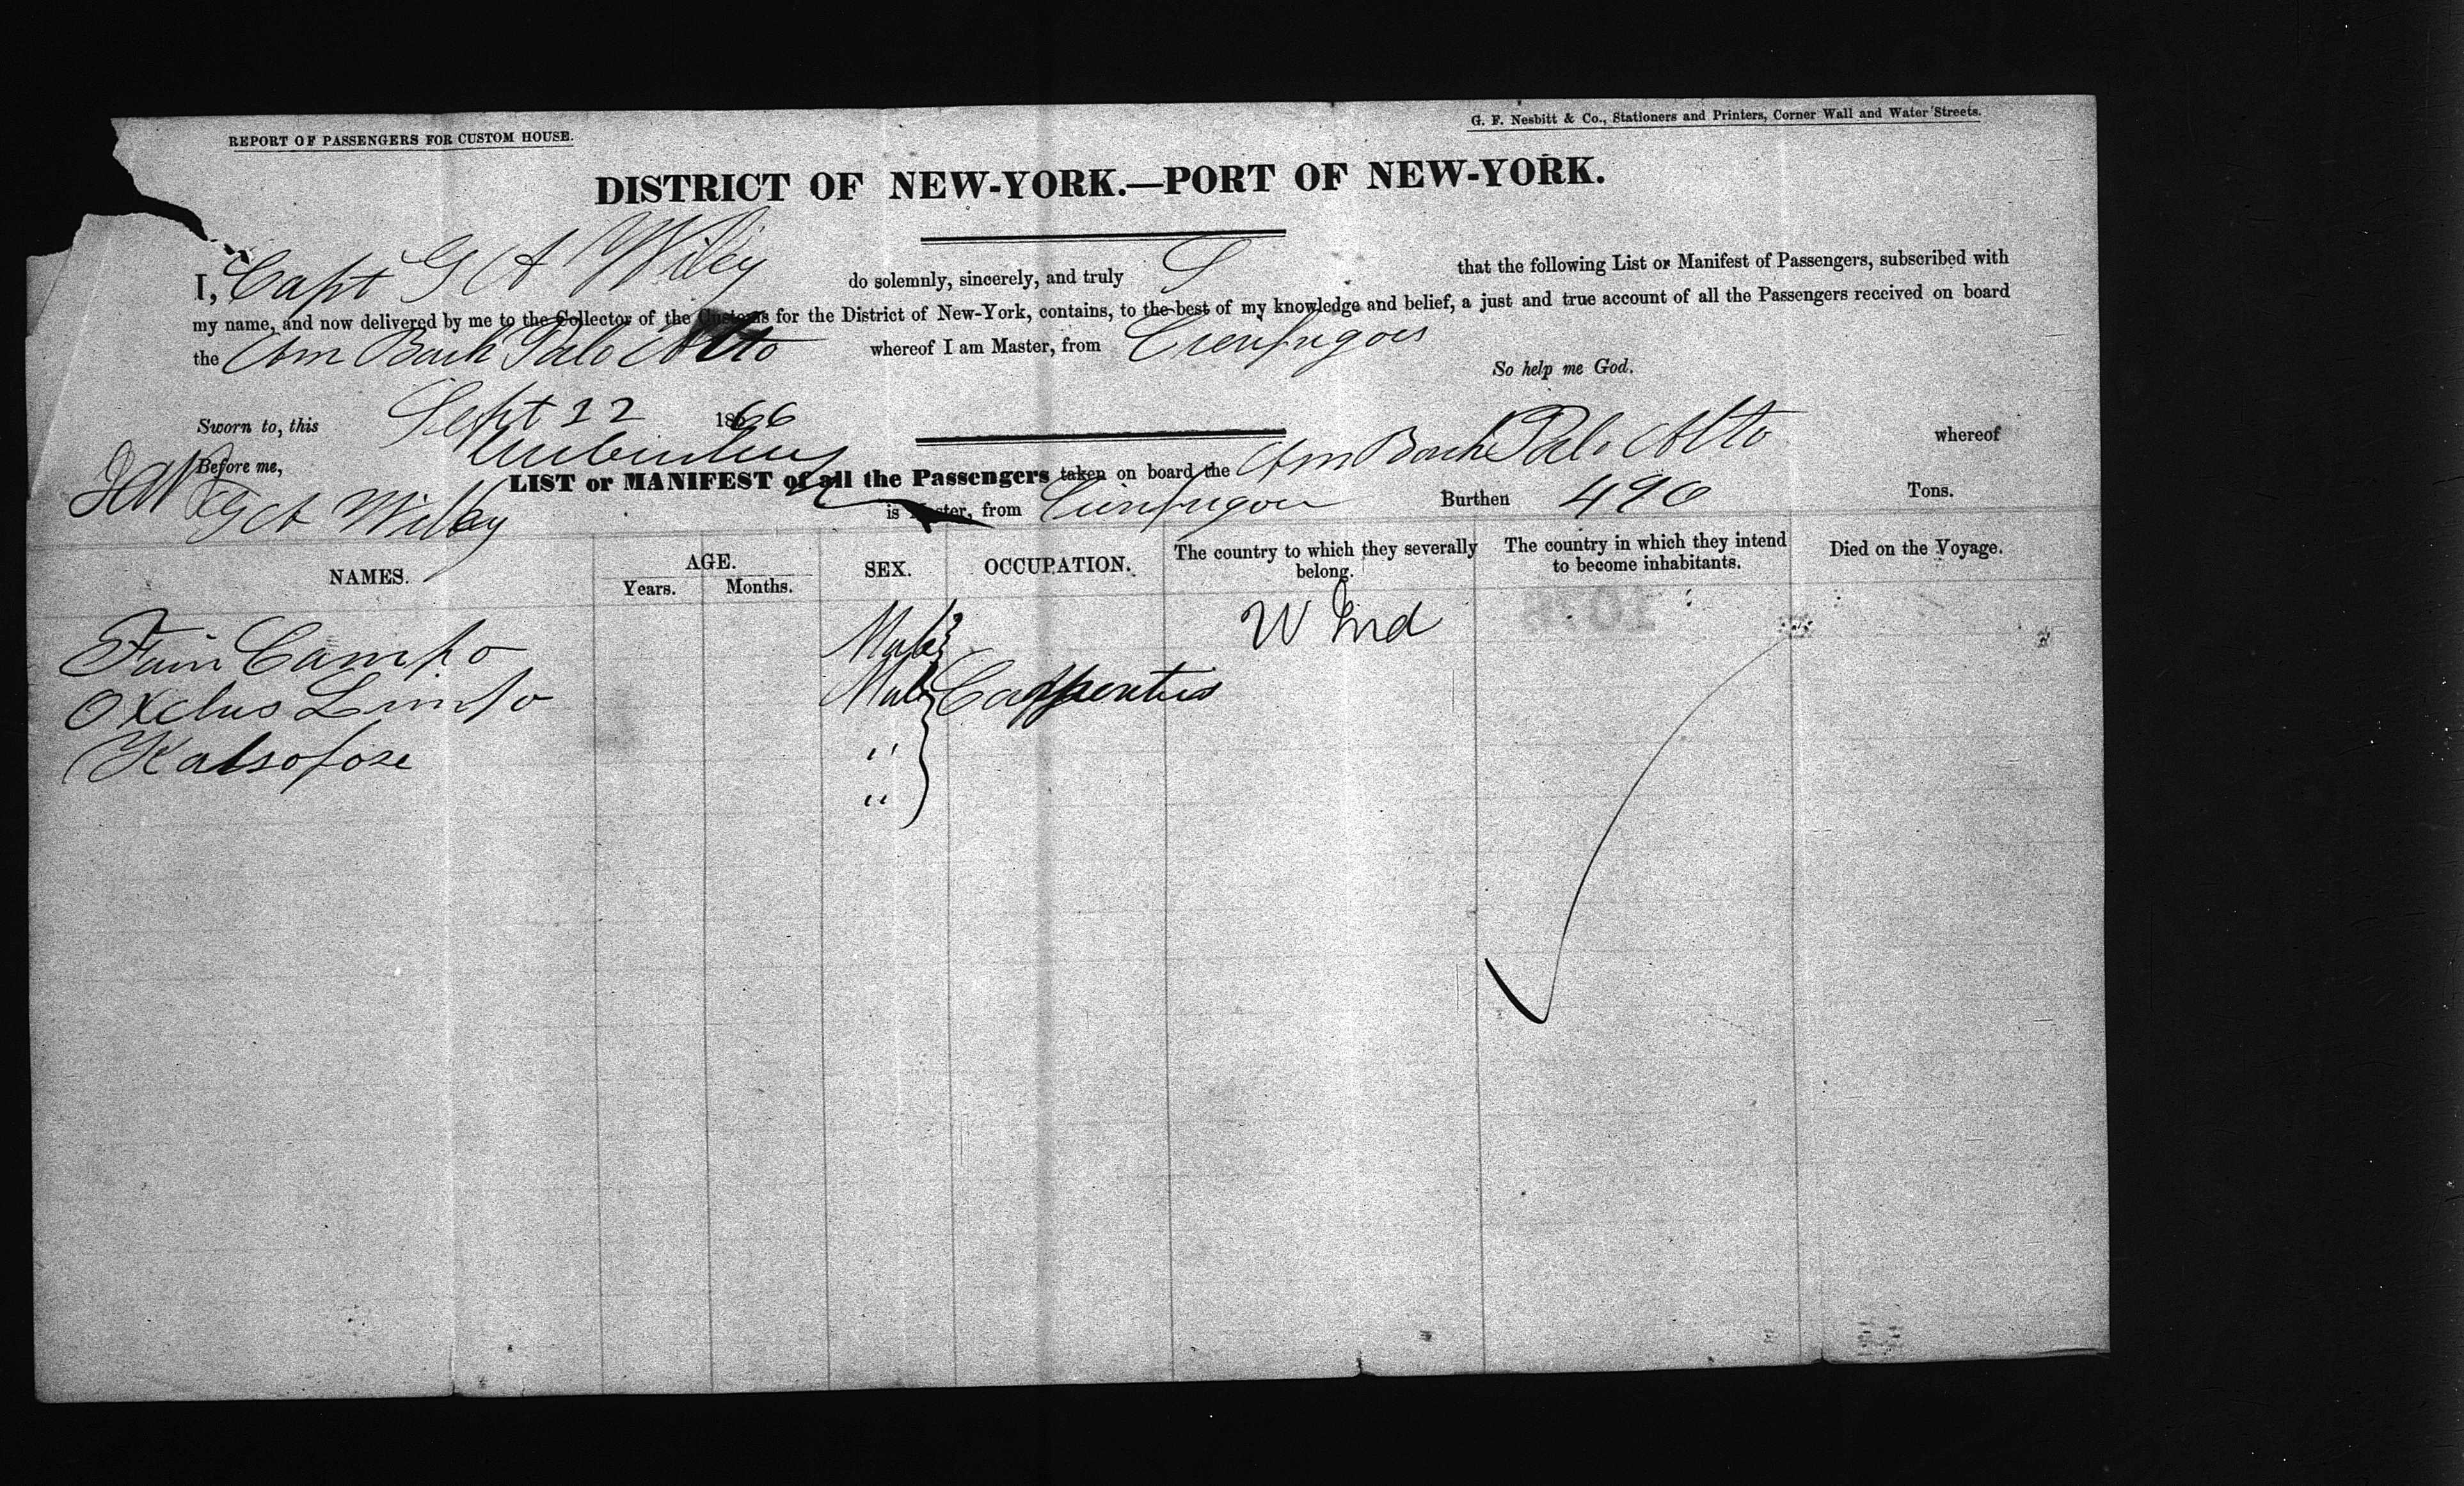 REPORT OF PASSENGERS FOR CUSTOM HOUSE.
G. F. Nesbitt & Co., Stationers and Printers, Corner Wall and Water Streets.
DISTRICT OF NEW-YORK.—PORT OF NEW-YORK.
I, Capt G A Wiley do solemnly, sincerely, and truly S that the following List or Manifest of Passengers, subscribed with
my name, and now delivered by me to the Collector of the Customs for the District of New-York, contains, to the best of my knowledge and belief, a just and true account of all the Passengers received on board
the Am Bark Palo Alto whereof I am Master, from Cienfugos
So help me God.
Sworn to, this Sept 22 1866
Before me,
G A Willey
LIST or MANIFEST of all the Passengers taken on board the Am Bark Palo Alto whereof
is Master, from Cienfugos Burthen 490 Tons.
NAMES. AGE. SEX. OCCUPATION. The country to which they severally belong. The country in which they intend to become inhabitants. Died on the Voyage.
Years. Months.
Campo Male W Ind
Male Carpenters
"
"